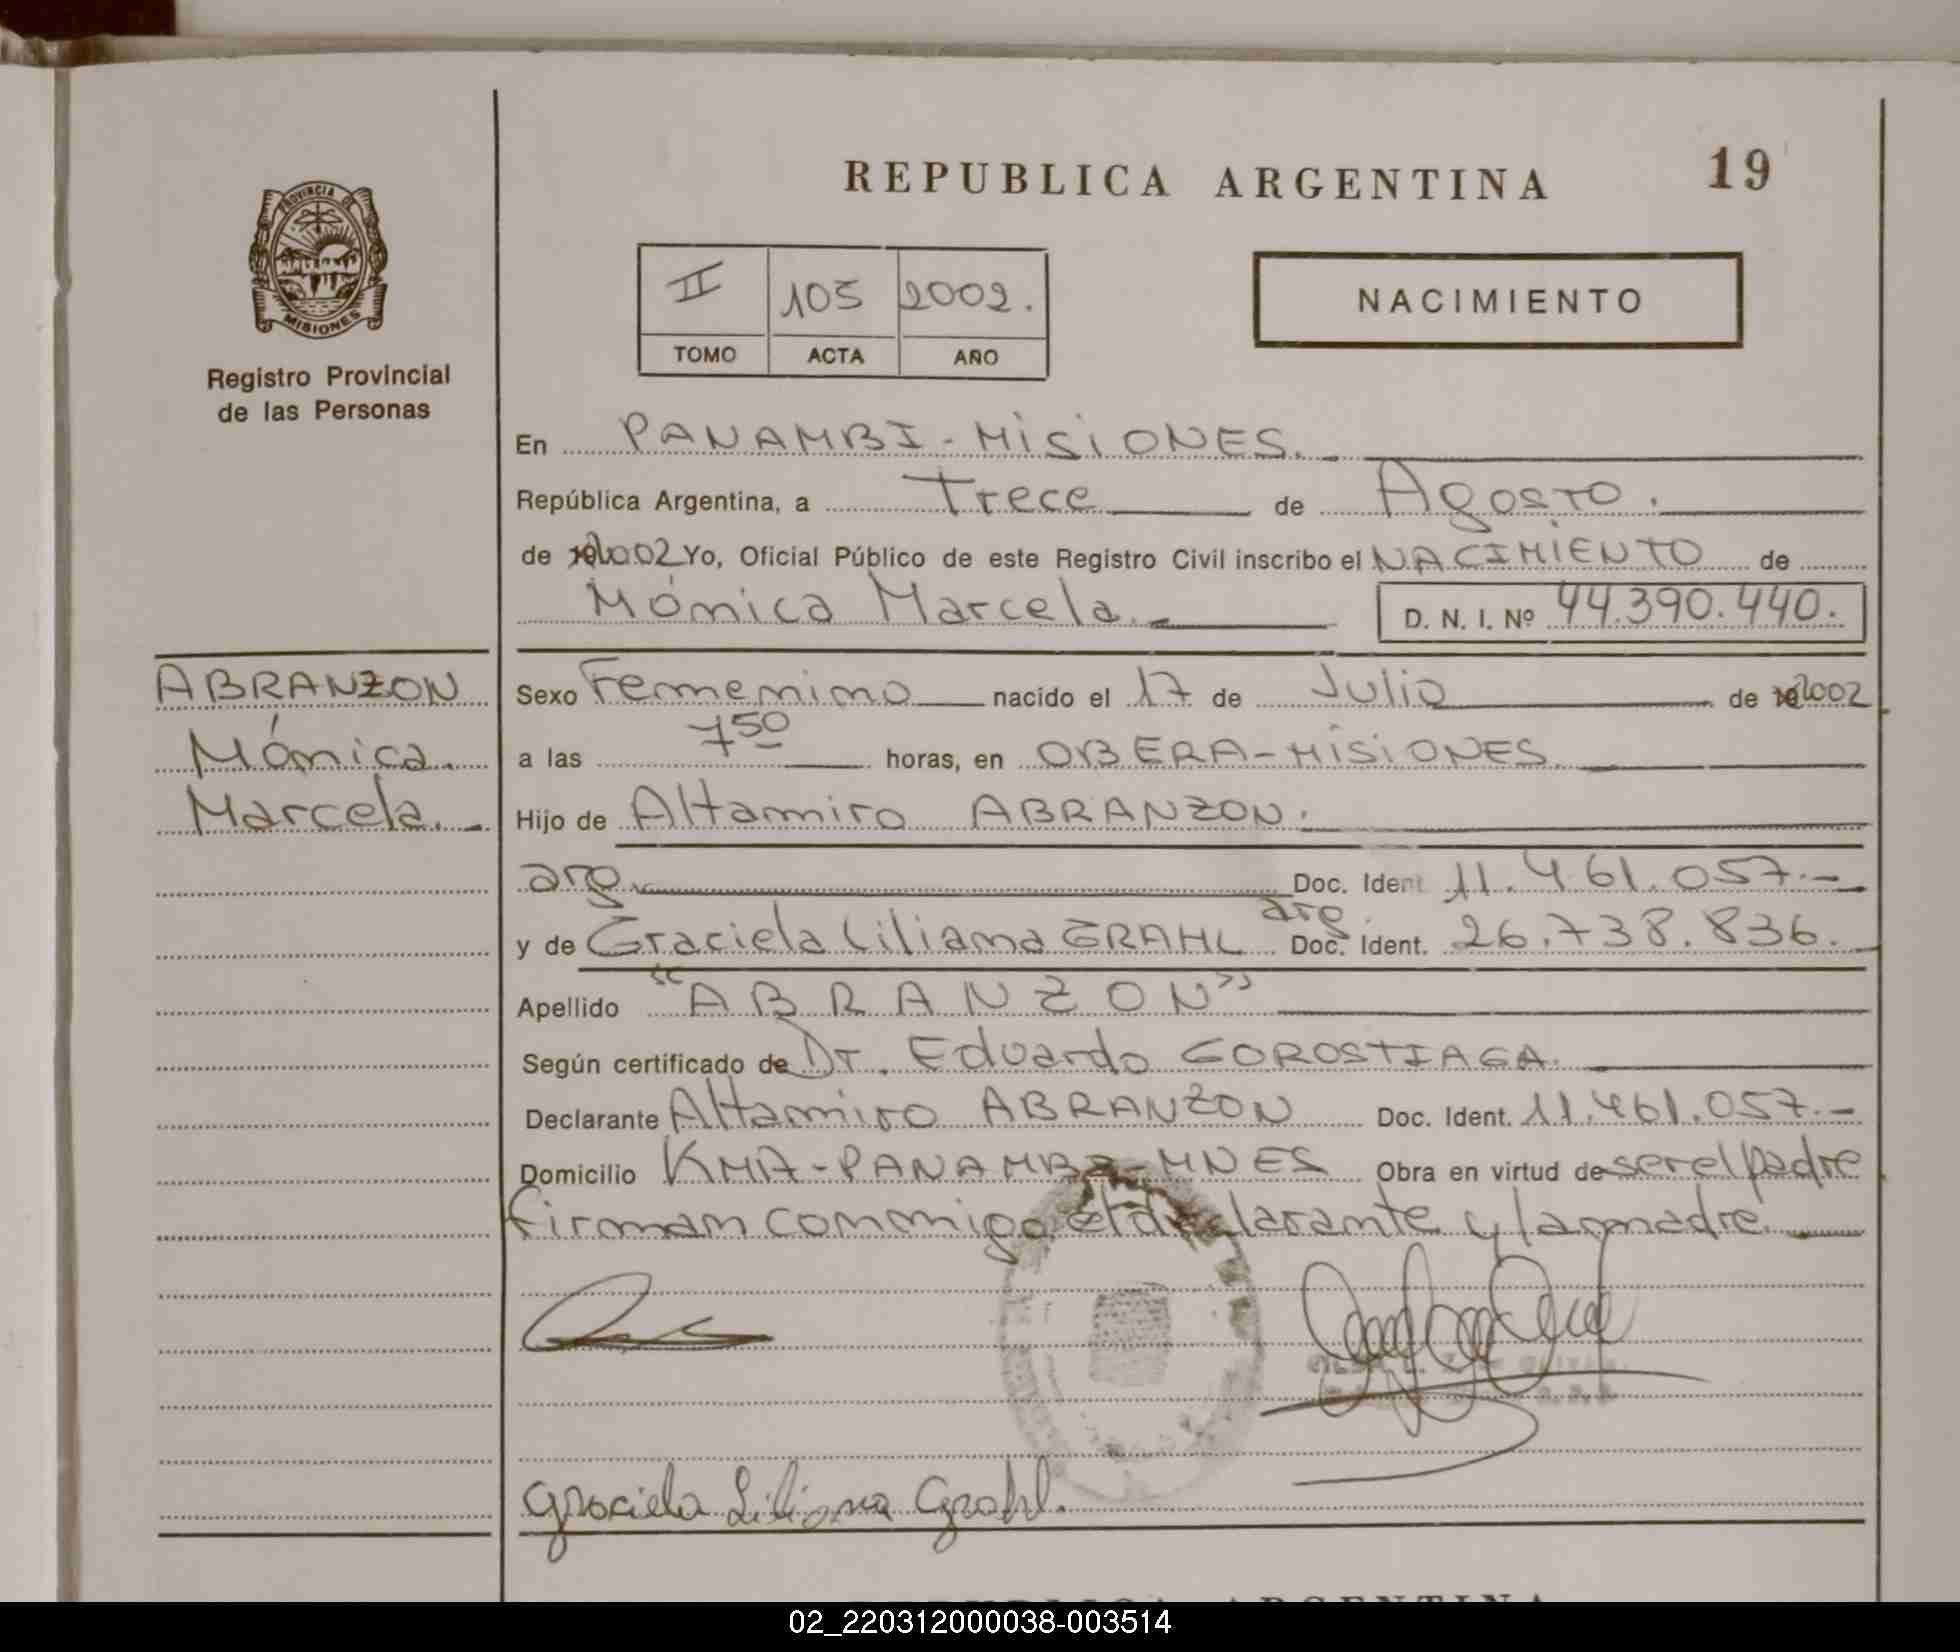 REPUBLICA ARGENTINA 19
PROVINCIA DE
MISIONES
Registro Provincial
de las Personas
II 105 2002.
TOMO ACTA AÑO
NACIMIENTO
En PANAMBI - MISIONES.
República Argentina, a Trece de Agosto.
de 2002 Yo, Oficial Público de este Registro Civil inscribo el NACIMIENTO de
Mónica Marcela. D. N. I. Nº 44.390.440.
ABRANZON
Mónica.
Marcela.
Sexo Femenino nacido el 17 de Julio de 2002
a las 7 50 horas, en OBERA-MISIONES.
Hijo de Altamiro ABRANZON.
arg. Doc. Ident 11.461.057.-
y de Graciela Liliana GRAHL arg. Doc. Ident. 26.738.836.
Apellido "ABRANZON"
Según certificado de Dr. Eduardo GOROSTIAGA.
Declarante Altamiro ABRANZON Doc. Ident. 11.461.057.-
Domicilio KMA-PANAMBI-MNES Obra en virtud de ser el padre
Firman conmigo el declarante y la madre.
Graciela Liliana Grahl.
REPUBLICA ARGENTINA
02_220312000038-003514